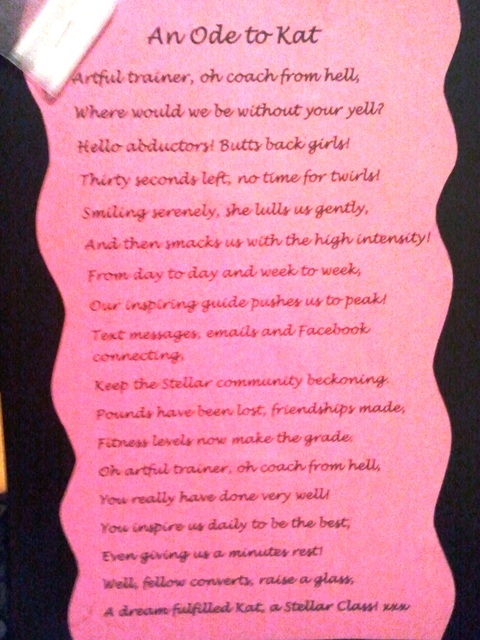 An Ode to Kat
Artful trainer, oh coach from hell,
Where would we be without your yell?
Hello abductors! Butts back girls!
Thirty seconds left, no time for twirls!
Smiling serenely, she lulls us gently,
And then smacks us with the high intensity!
From day to day and week to week,
Our inspiring guide pushes us to peak!
Text messages, emails and Facebook
connecting,
Keep the Stellar community beckoning.
Pounds have been lost, friendships made,
Fitness levels now make the grade.
Oh artful trainer, oh coach from hell,
You really have done very well!
You inspire us daily to be the best,
Even giving us a minutes rest!
Well, fellow converts, raise a glass,
A dream fulfilled Kat, a Stellar Class! xxx